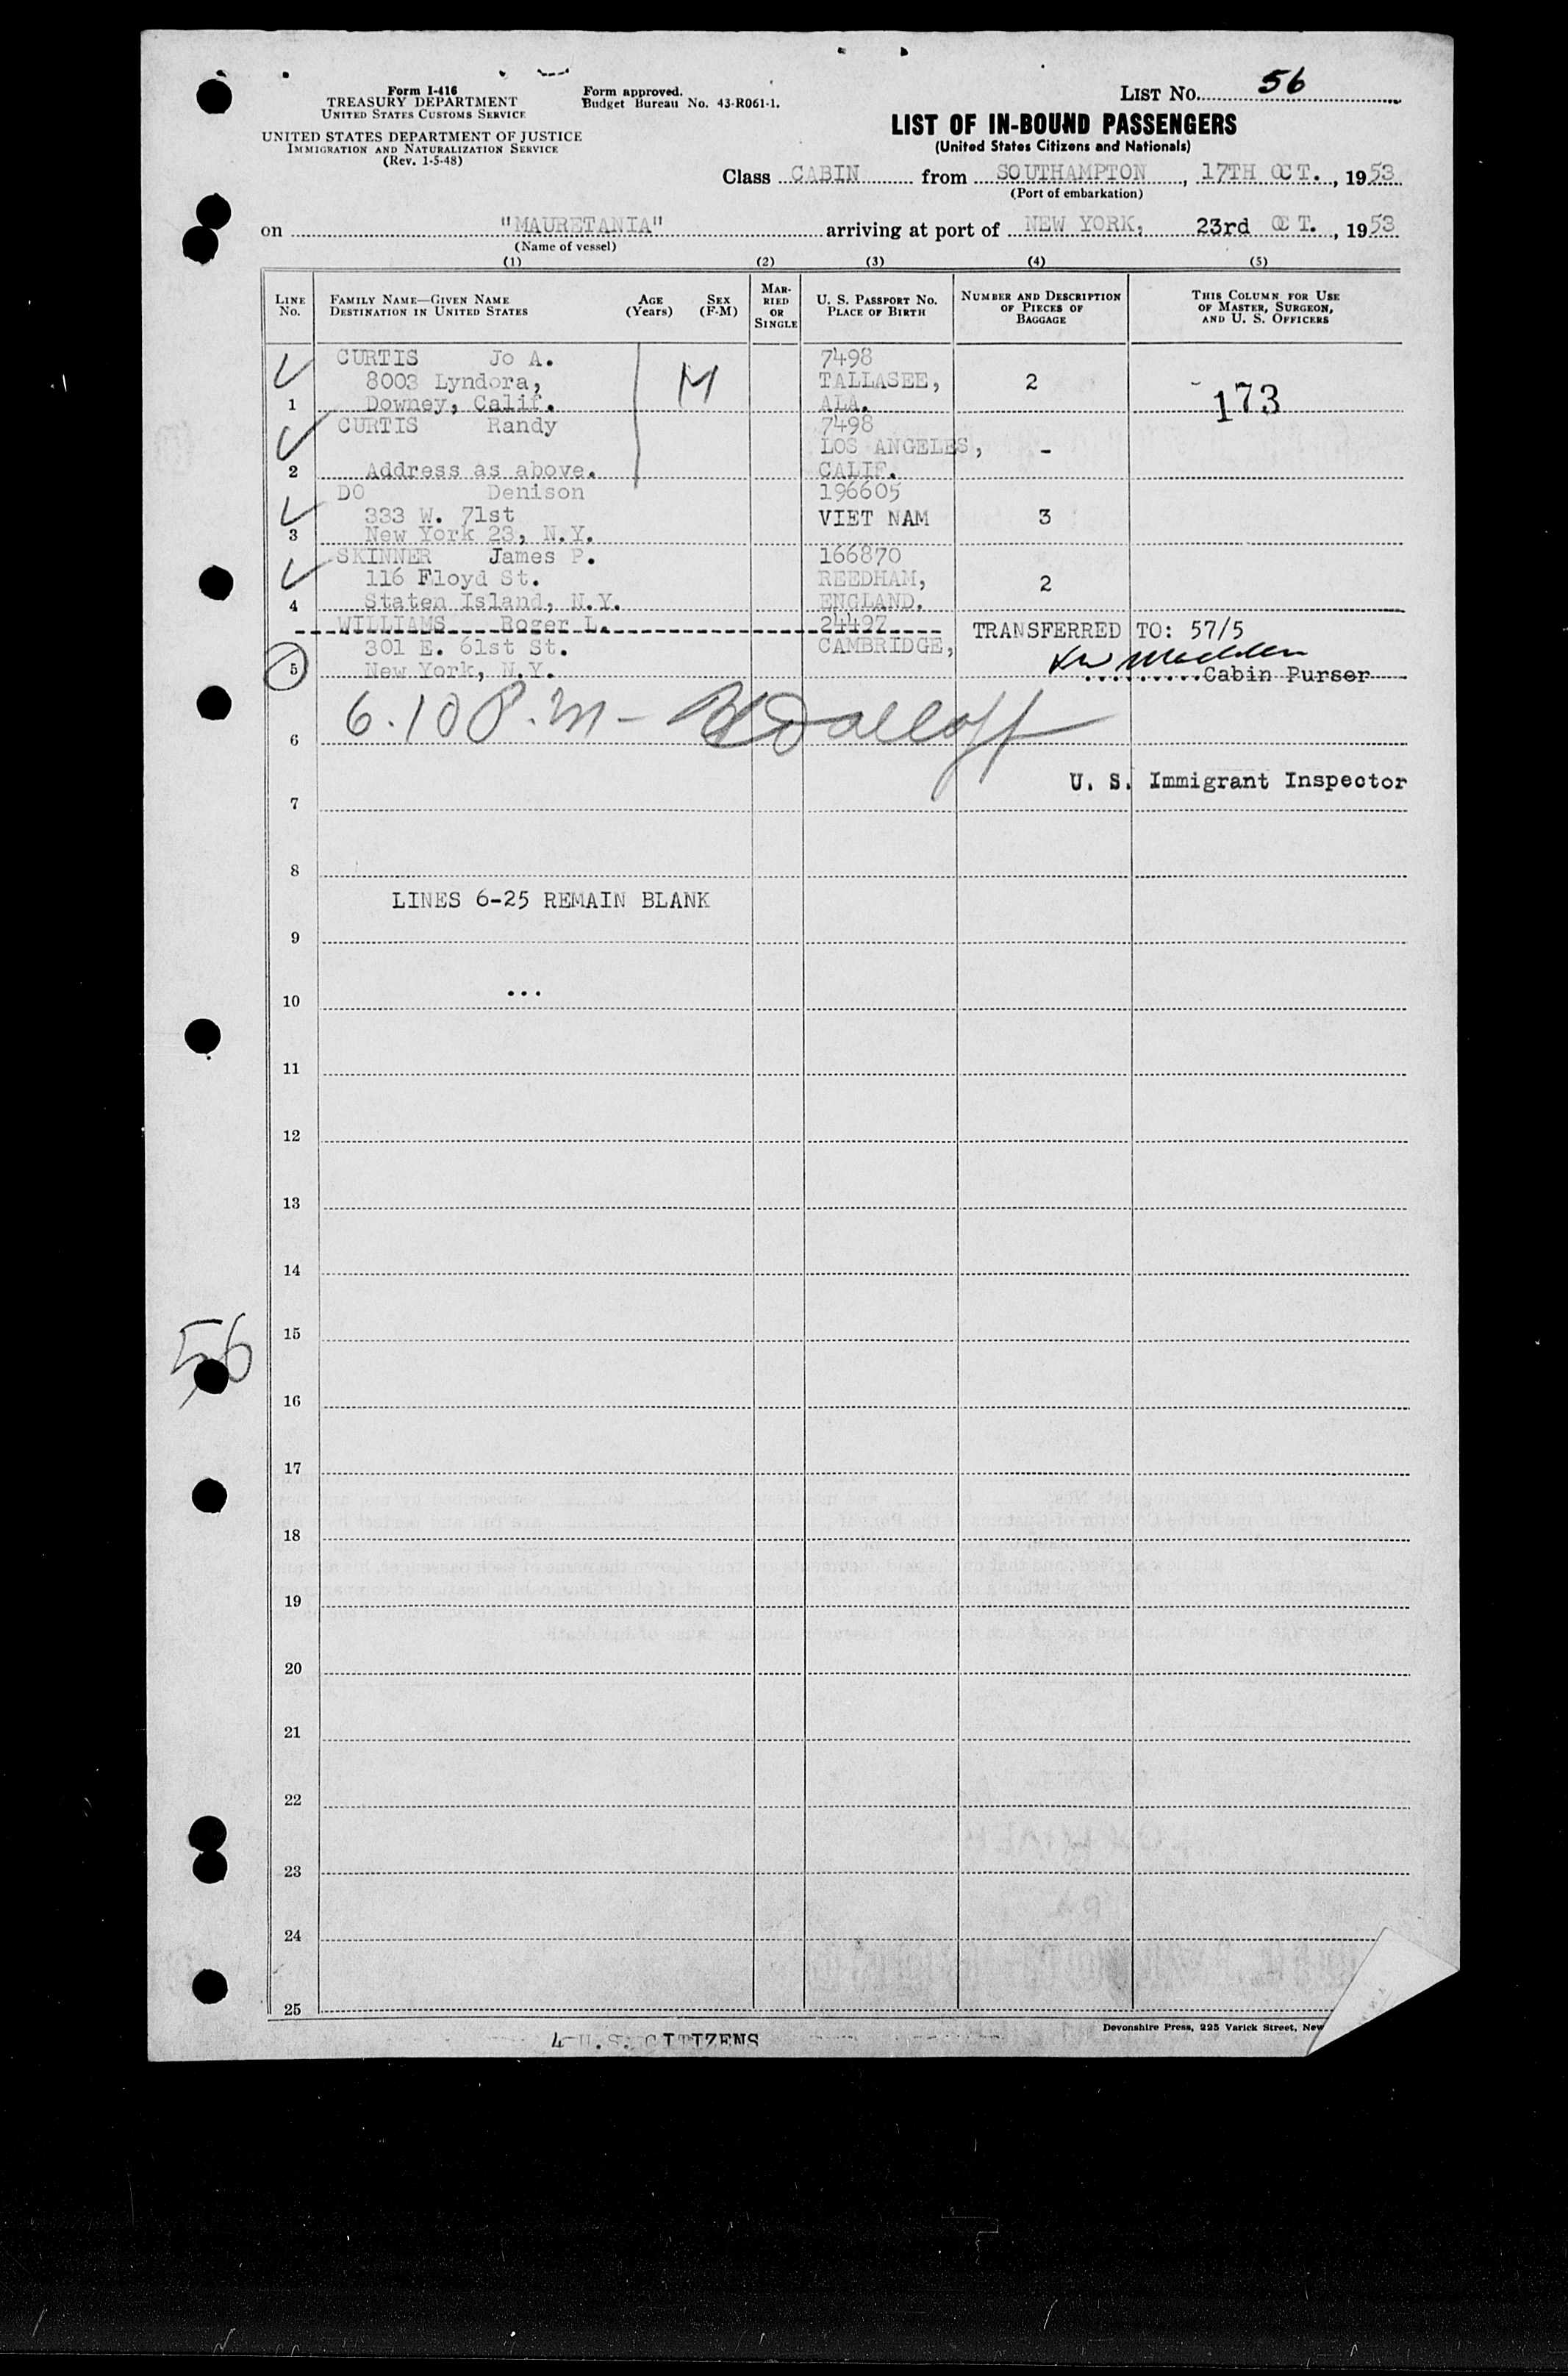 Form I-416
TREASURY DEPARTMENT
UNITED STATES CUSTOMS SERVICE
UNITED STATES DEPARTMENT OF JUSTICE
IMMIGRATION AND NATURALIZATION SERVICE
(Rev. 1-5-48)
Form approved.
Budget Bureau No. 43-R061-1.
LIST No. 56
LIST OF IN-BOUND PASSENGERS
(United States Citizens and Nationals)
Class CABIN from SOUTHAMPTON, 17TH OCT., 1953
(Port of embarkation)
on "MAURETANIA" arriving at port of NEW YORK, 23rd OCT., 1953
(Name of vessel)
(1) (2) (3) (4) (5)
LINE No.
FAMILY NAME—GIVEN NAME
DESTINATION IN UNITED STATES
AGE (Years)
SEX (F-M)
MARRIED OR SINGLE
U. S. PASSPORT No.
PLACE OF BIRTH
NUMBER AND DESCRIPTION OF PIECES OF BAGGAGE
THIS COLUMN FOR USE OF MASTER, SURGEON, AND U. S. OFFICERS
CURTIS Jo A. 7498
8003 Lyndora, M TALLASEE, 2 173
1 Downey, Calif. ALA.
CURTIS Randy 7498
LOS ANGELES, -
2 Address as above. CALIF.
DO Denison 196605
333 W. 71st VIET NAM 3
3 New York 23, N.Y.
SKINNER James P. 166870
116 Floyd St. REEDHAM, 2
4 Staten Island, N.Y. ENGLAND.
WILLIAMS Roger L. 24497 TRANSFERRED TO: 57/5
301 E. 61st St. CAMBRIDGE,
5 New York, N.Y. .........Cabin Purser
6.10 P.M -
6
U. S. Immigrant Inspector
7
8
LINES 6-25 REMAIN BLANK
9
...
10
11
12
13
14
15
56
16
17
18
19
20
21
22
23
24
25
Devonshire Press, 225 Varick Street, New
4 U.S. CITIZENS